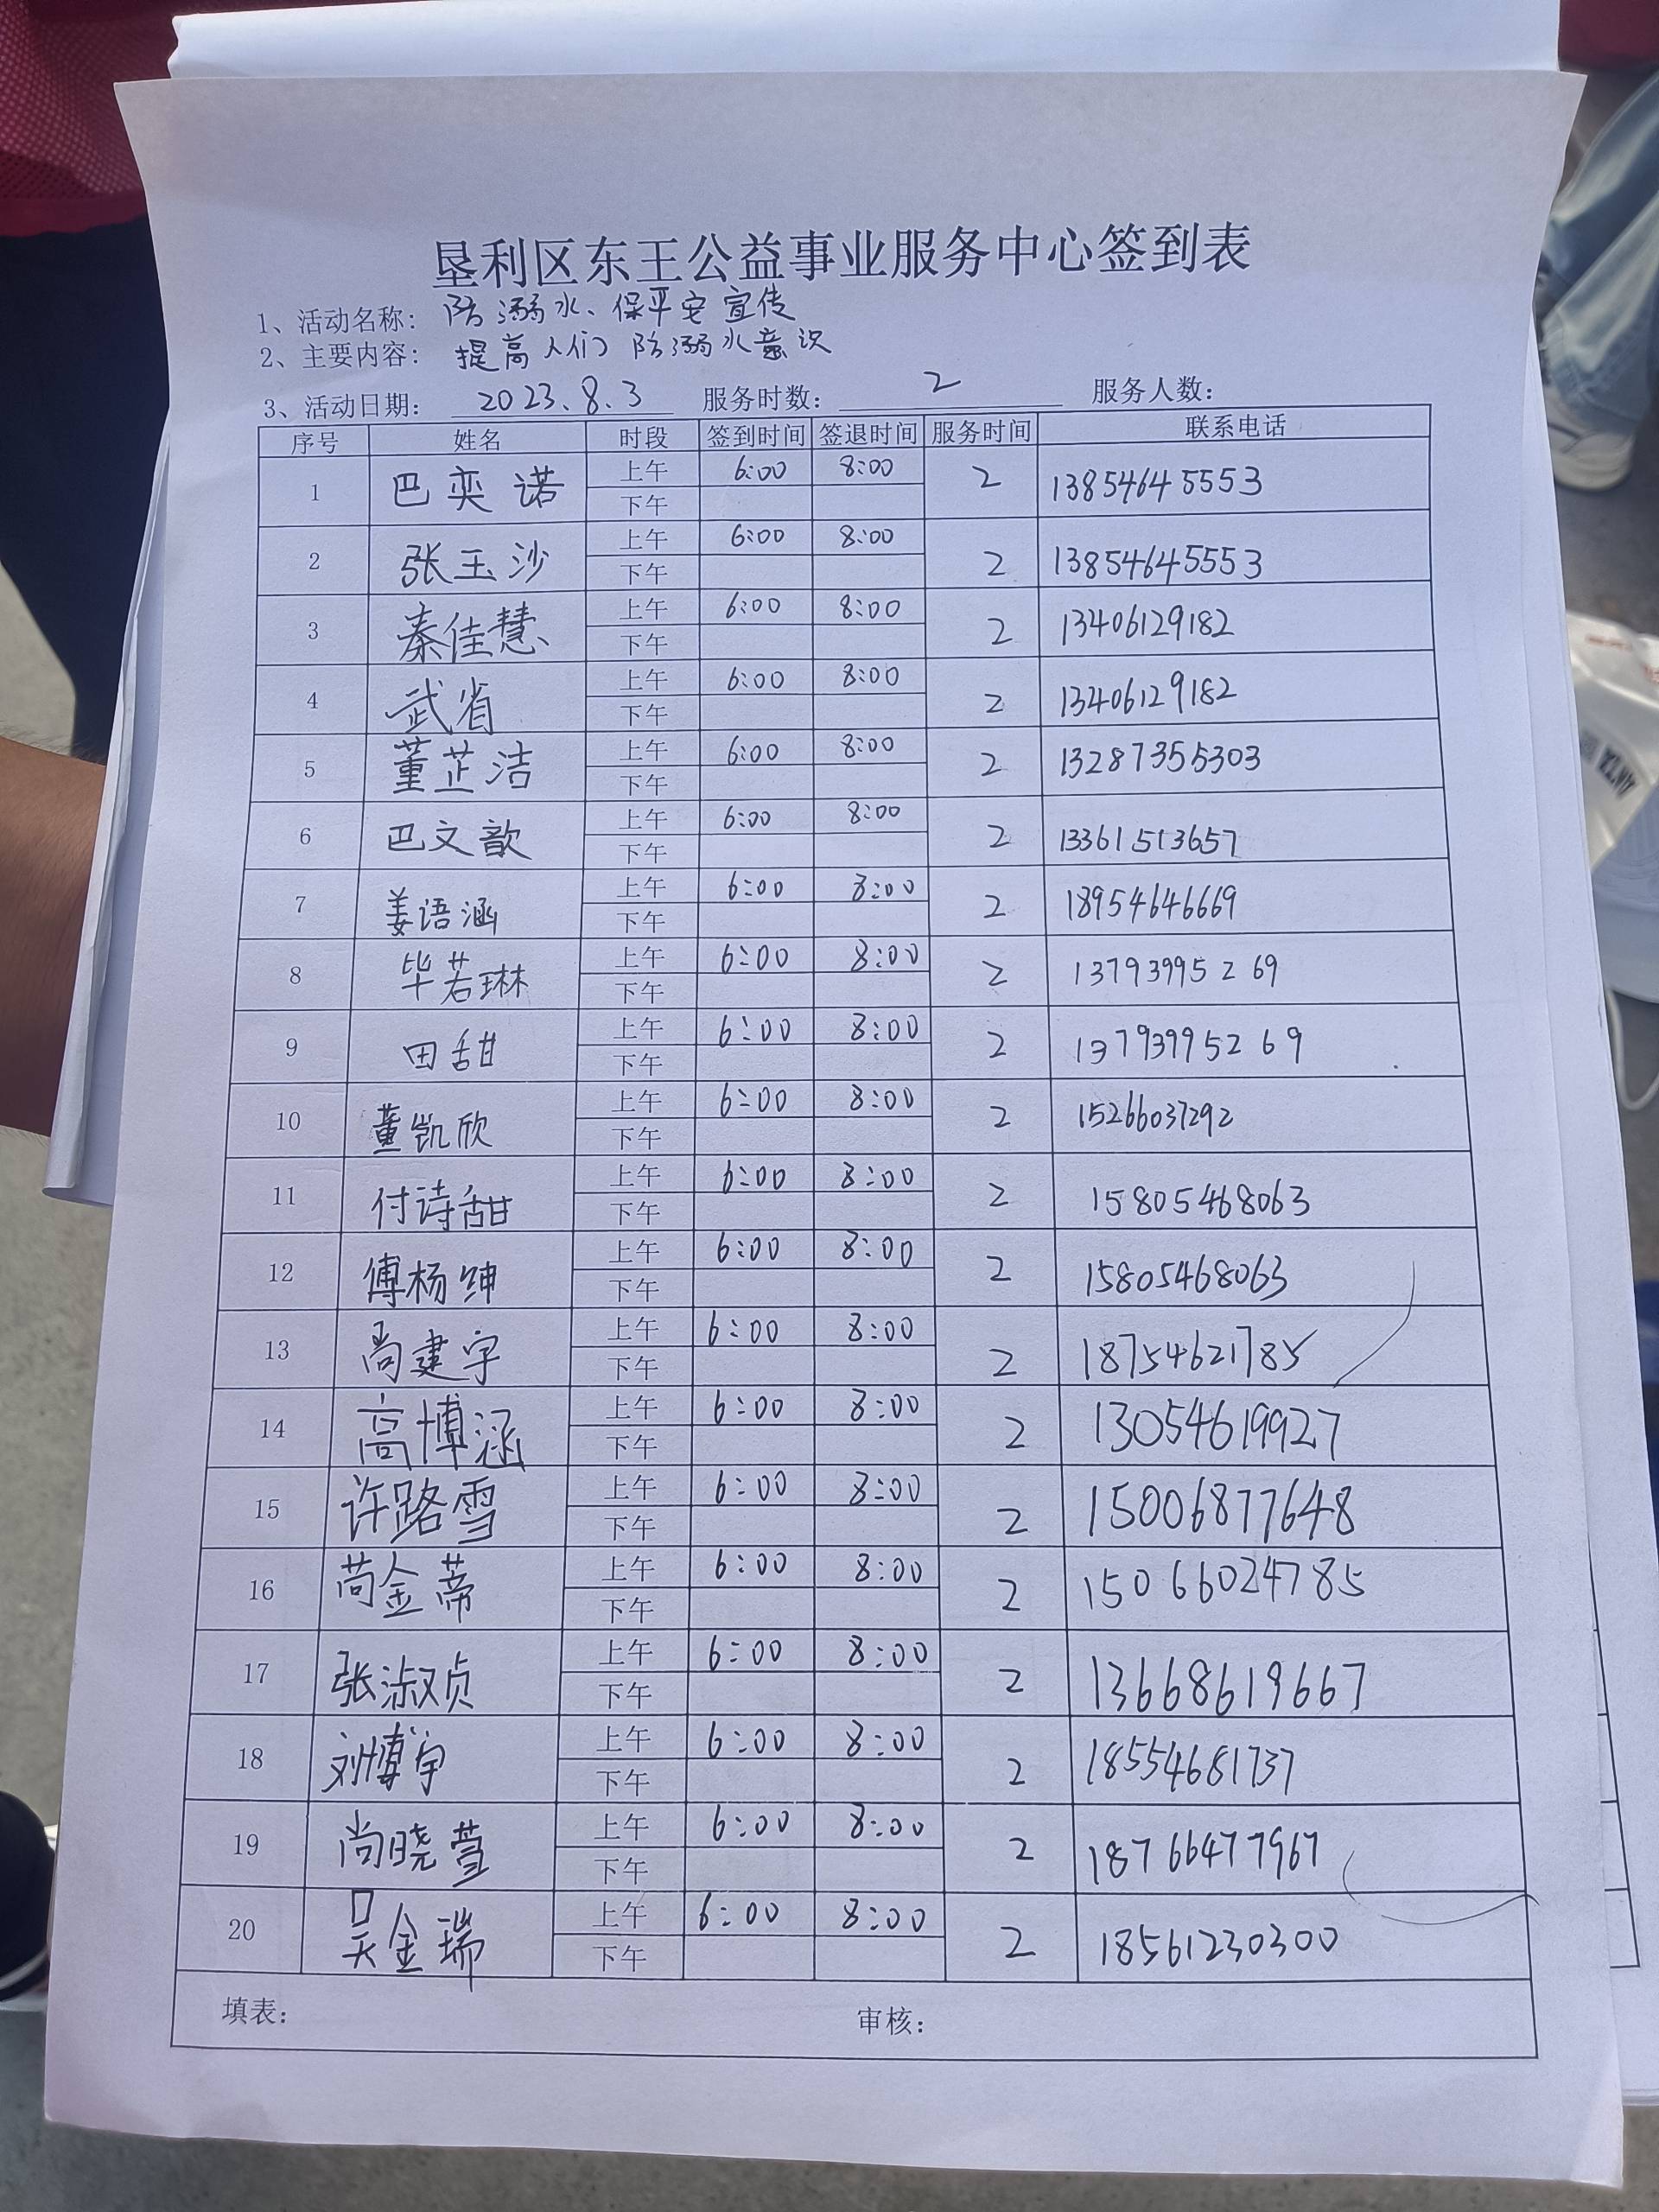 垦利区东王公益事业服务中心签到表
1、活动名称: 防溺水、保平安宣传
2、主要内容: 提高人们防溺水意识
3、活动日期: 2023.8.3 服务时数: 2 服务人数:
序号 姓名 时段 签到时间 签退时间 服务时间 联系电话
1 巴奕诺 上午 6:00 8:00 2 13854645553
下午
2 张玉沙 上午 6:00 8:00 2 13854645553
下午
3 秦佳慧 上午 6:00 8:00 2 13406129182
下午
4 武省 上午 6:00 8:00 2 13406129182
下午
5 董芷洁 上午 6:00 8:00 2 13287355303
下午
6 巴文歆 上午 6:00 8:00 2 13361513657
下午
7 姜语涵 上午 6:00 8:00 2 18954646669
下午
8 毕若琳 上午 6:00 8:00 2 13793995269
下午
9 田甜 上午 6:00 8:00 2 13793995269
下午
10 董凯欣 上午 6:00 8:00 2 15266037292
下午
11 付诗甜 上午 6:00 8:00 2 15805468063
下午
12 傅杨绅 上午 6:00 8:00 2 15805468063
下午
13 尚建宇 上午 6:00 8:00 2 18754621785
下午
14 高博涵 上午 6:00 8:00 2 13054619927
下午
15 许路雪 上午 6:00 8:00 2 15006877648
下午
16 苘金蒂 上午 6:00 8:00 2 15066024785
下午
17 张淑贞 上午 6:00 8:00 2 13668619667
下午
18 刘博宇 上午 6:00 8:00 2 18554681737
下午
19 尚晓萱 上午 6:00 8:00 2 18766477967
下午
20 吴金瑞 上午 6:00 8:00 2 18561230300
下午
填表: 审核:
ANTA